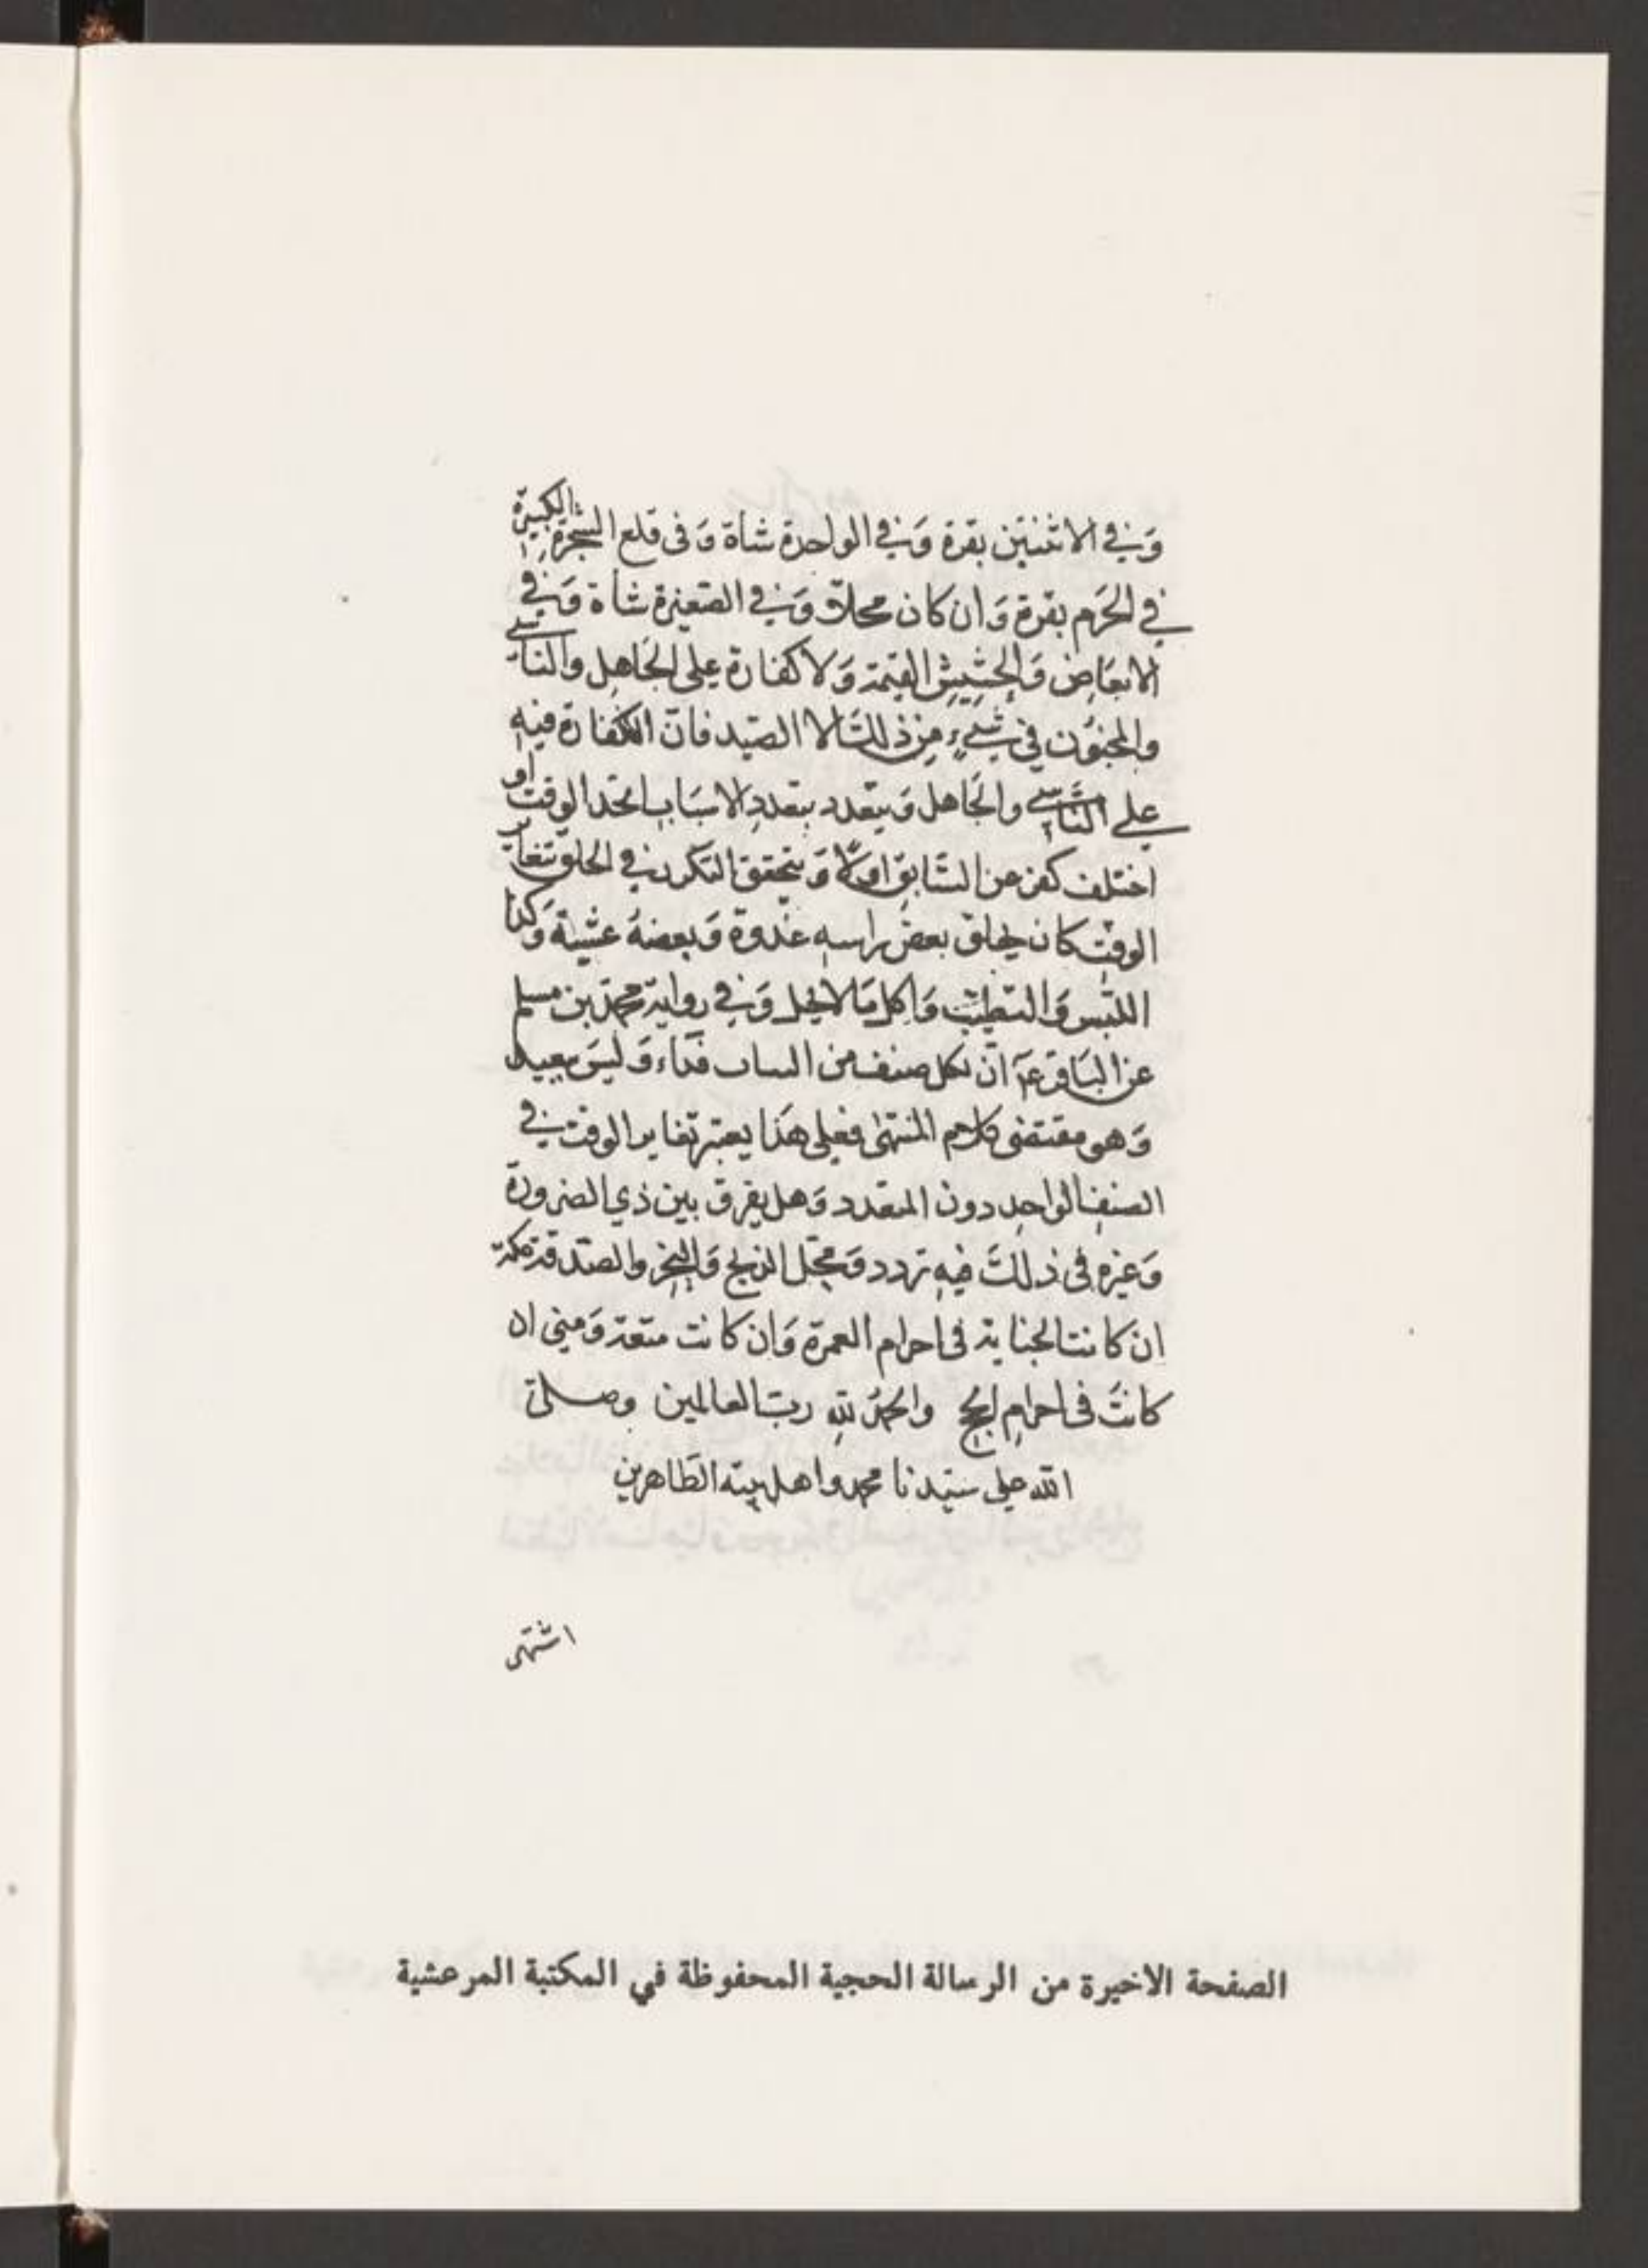 وَفي الاثنتين بقرة وَفي الواحدة شاة وَفى قلع الشجرة الكبيرة
في الحَرَم بقرة وَان كان محلاّ وَفي الصّغيرة شاة وَفي
الابعَاض وَالحشِيشِ القيمة وَلا كفارة على الجَاهِل والنّاسي
والمجنوُن في شيءٍ مِن ذلكَ الا الصّيد فان الكفارة فيهِ
على النّاسي والجَاهل وَيتعدد بتعددِ الاسبَاب اتحد الوقت او
اختلف كفر عن السَّابق اولاً وَيتحقق التكرر في الحلق بتغاير
الوقتِ كان يحلق بعضَ راسهِ غدوة وَبعضهُ عشية وَكذا
اللبس وَالتطيّب وَاكل مَا لا يحل وَفي رواية محمّد بن مسلم
عن البَاقر عَ انّ لكل صنف من الساب فدَاء وَليسَ ببعيد
وَهو مقتضى كلام المنتهى فعلى هَذا يعتبر تغاير الوقت في
الصنفِ الواحِد دون المتعدد وَهل يفرق بين ذي الضرورة
وَغيره فى ذلكَ فيهِ تردد وَمحَل الذبح وَالنحر والصّدقة مكة
ان كانت الجناية فى احرام العمرة وَان كانت متعة وَمنى ان
كانتَ فى احرامِ الحجِ والحمدُ للهِ ربّ العالمين وصلى
الله على سيّدنا محمد واهل بيته الطّاهرين
انتهى
الصفحة الاخيرة من الرسالة الحجية المحفوظة في المكتبة المرعشية